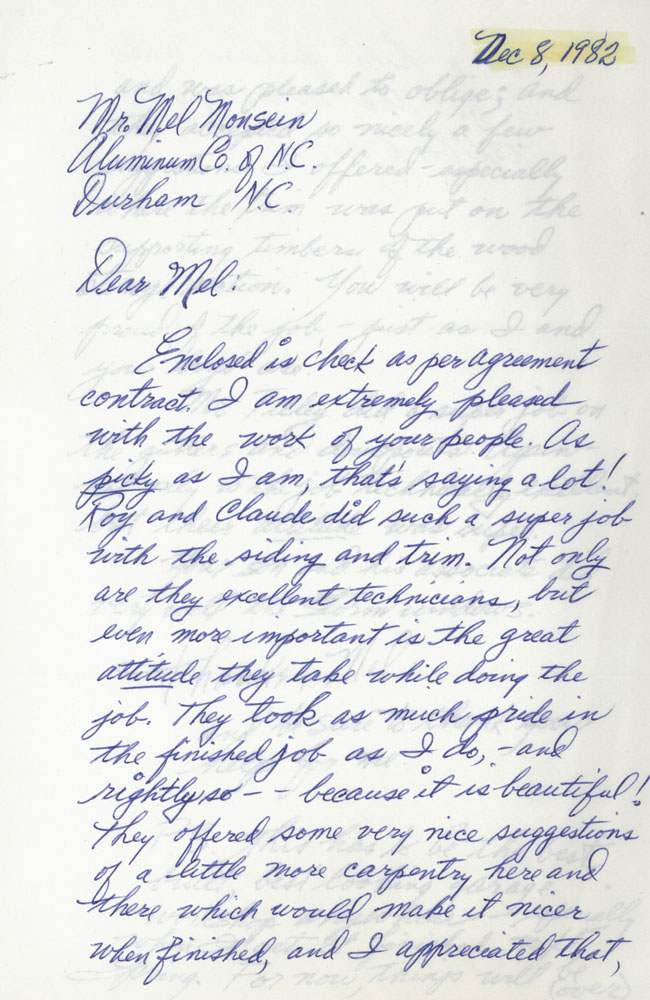 Dec 8, 1982
Mr. Mel Monsein
Aluminum Co. of N.C.
Durham N.C.
Dear Mel:
Enclosed is check as per agreement
contract. I am extremely pleased
with the work of your people. As
picky as I am, that's saying a lot!
Roy and Claude did such a super job
with the siding and trim. Not only
are they excellent technicians, but
even more important is the great
attitude they take while doing the
job. They took as much pride in
the finished job as I do, - and
rightly so - - because it is beautiful!
They offered some very nice suggestions
of a little more carpentry here and
there which would make it nicer
when finished, and I appreciated that,
(over)